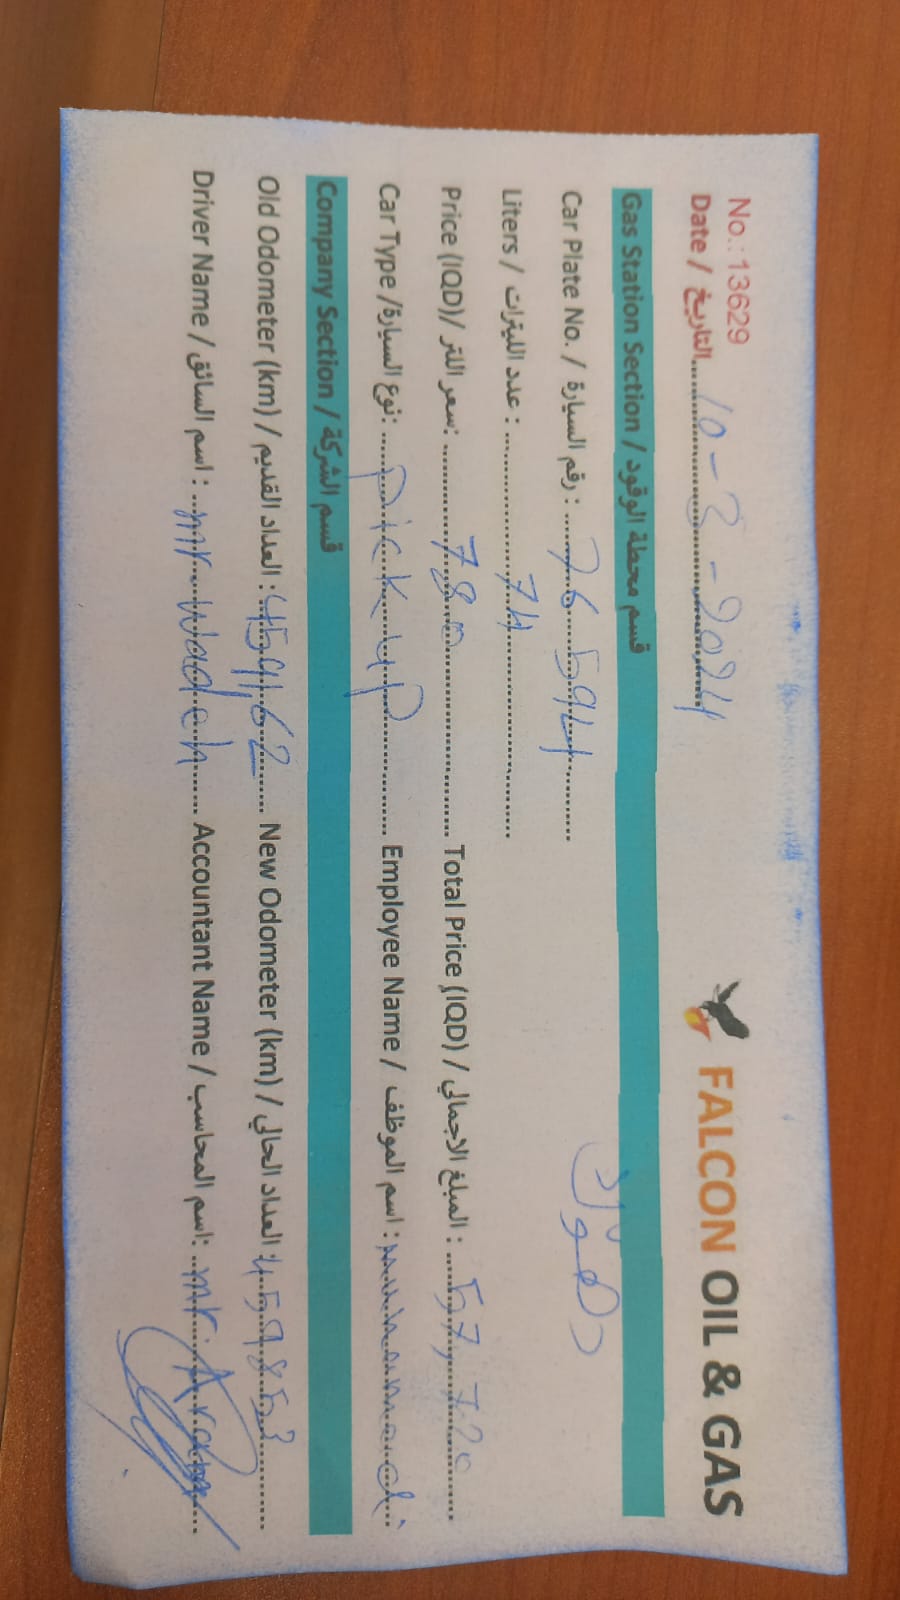 No.: 13629
FALCON OIL & GAS
Date / التاريخ 10-2-2024
Gas Station Section / قسم محطة الوقود
Car Plate No. / رقم السيارة : 76594
Liters / عدد الليترات : 74
Price (IQD)/ سعر اللتر: 780 Total Price (IQD) / المبلغ الاجمالي : 57,720
Car Type /نوع السيارة: Pick up Employee Name / اسم الموظف : muhamad
Company Section / قسم الشركة
Old Odometer (km) / العداد القديم : 459,162 New Odometer (km) / العداد الحالي : 459853
Driver Name / اسم السائق : mr. wadeh Accountant Name / اسم المحاسب: mr. Aram